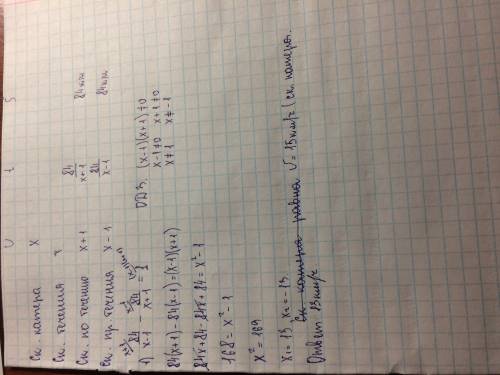 υ 1 S
Ск. катера x
Ск. течения
Ск. по течению x+1 84/(x+1) 84 км
Ск. пр. течения x-1 84/(x-1) 84 км
1) 84/(x-1) - 84/(x+1) = 1 ОДЗ. (x-1)(x+1)≠0
x-1≠0 x+1≠0
x≠1 x≠-1
84(x+1)-84(x-1)=(x-1)(x+1)
84x+84-84x+84=x²-1
168=x²-1
x²=169
x₁=13, x₂=-13.
Ск. катера равна υ=15км/ч (ск. катера.
Ответ 13км/ч